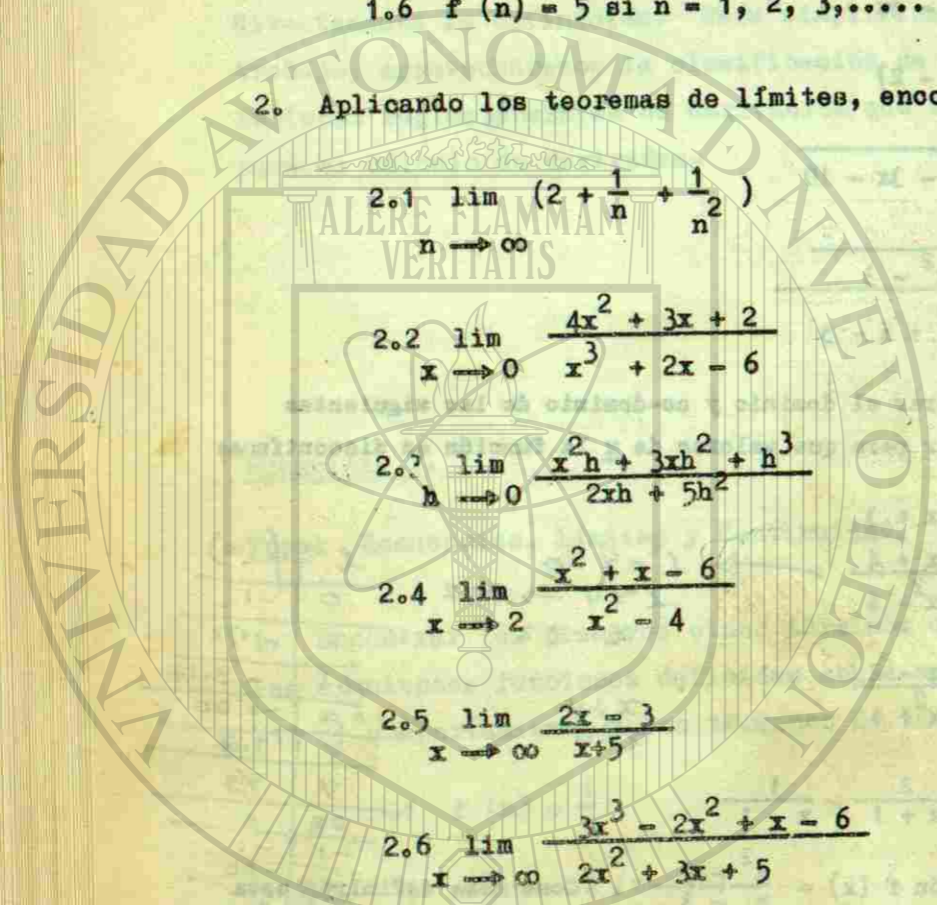 1.6 f (n) = 5 si n = 1, 2, 3,.....
2. Aplicando los teoremas de límites,
2.1 lim (2 + 1/n + 1/n^2 )
n → ∞
2.2 lim (4x^2 + 3x + 2)/(x^3 + 2x - 6)
x → 0
2.3 lim (x^2h + 3xh^2 + h^3)/(2xh + 5h^2)
h → 0
2.4 lim (x^2 + x - 6)/(x^2 - 4)
x → 2
2.5 lim (2x - 3)/(x+5)
x → ∞
2.6 lim (3x^3 - 2x^2 + x - 6)/(2x^2 + 3x + 5)
x → ∞
UNIVERSIDAD AUTONOMA DE NUEVO LEON
ALERE FLAMMAM
VERITATIS